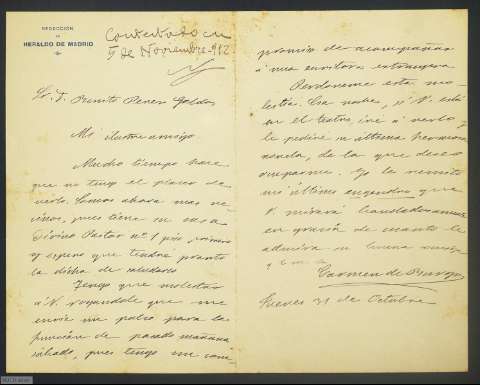 REDACCIÓN
DE
HERALDO DE MADRID
Contestada en
5 de Noviembre-912
Sr. D. Benito Perez Galdos
Mi ilustre amigo:
Mucho tiempo hace
que no tengo el placer de
verlo. Somos ahora mas ve
cinos, pues tiene su casa
Divino Pastor nº 1 piso primero
y espero que tendre pronto
la dicha de saludarlo
Tengo que molestar
á V. rogandole que me
envie un palco para la
función de pasado mañana
sábado, pues tengo un com
promiso de acompañar
á una escritora extranjera
Perdoneme esta mo
lestia. Esa noche, si V. está
en el teatro, iré á verlo y
le pediré su última hermosa
novela, de la que deseo
ocuparme. Yo le remito
mi último engendro que
V. mirará bondadosamente
en gracia de cuanto le
admira su buena amiga
Carmen de Burgos
Jueves 31 de Octubre